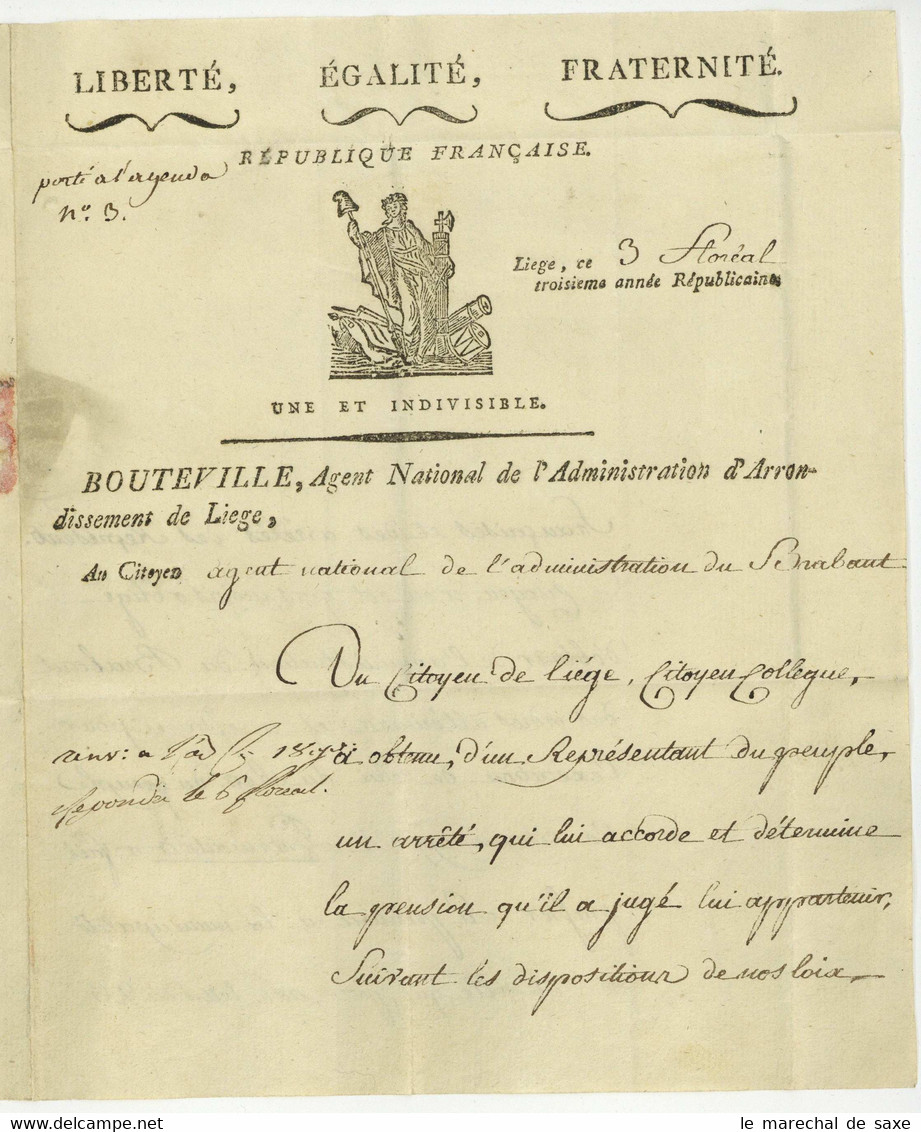 LIBERTÉ, ÉGALITÉ, FRATERNITÉ.
RÉPUBLIQUE FRANÇAISE.
porté a l'agenda
n.o 3.
Liege, ce 3 floréal
troisieme année Républicaine
UNE ET INDIVISIBLE.
BOUTEVILLE, Agent National de l'Administration d'Arron-
dissement de Liege,
Au Citoyen agent national de l'administration du Brabant
Un Citoyen de Liége, Citoyen Collegue,
a obtenu, d'un Représentant du peuple,
repondu le 6 floreal.
un arrêté, qui lui accorde et détermine
la pension qu'il a jugé lui appartenir,
Suivant les dispositions de nos loix,
le marechal de saxe